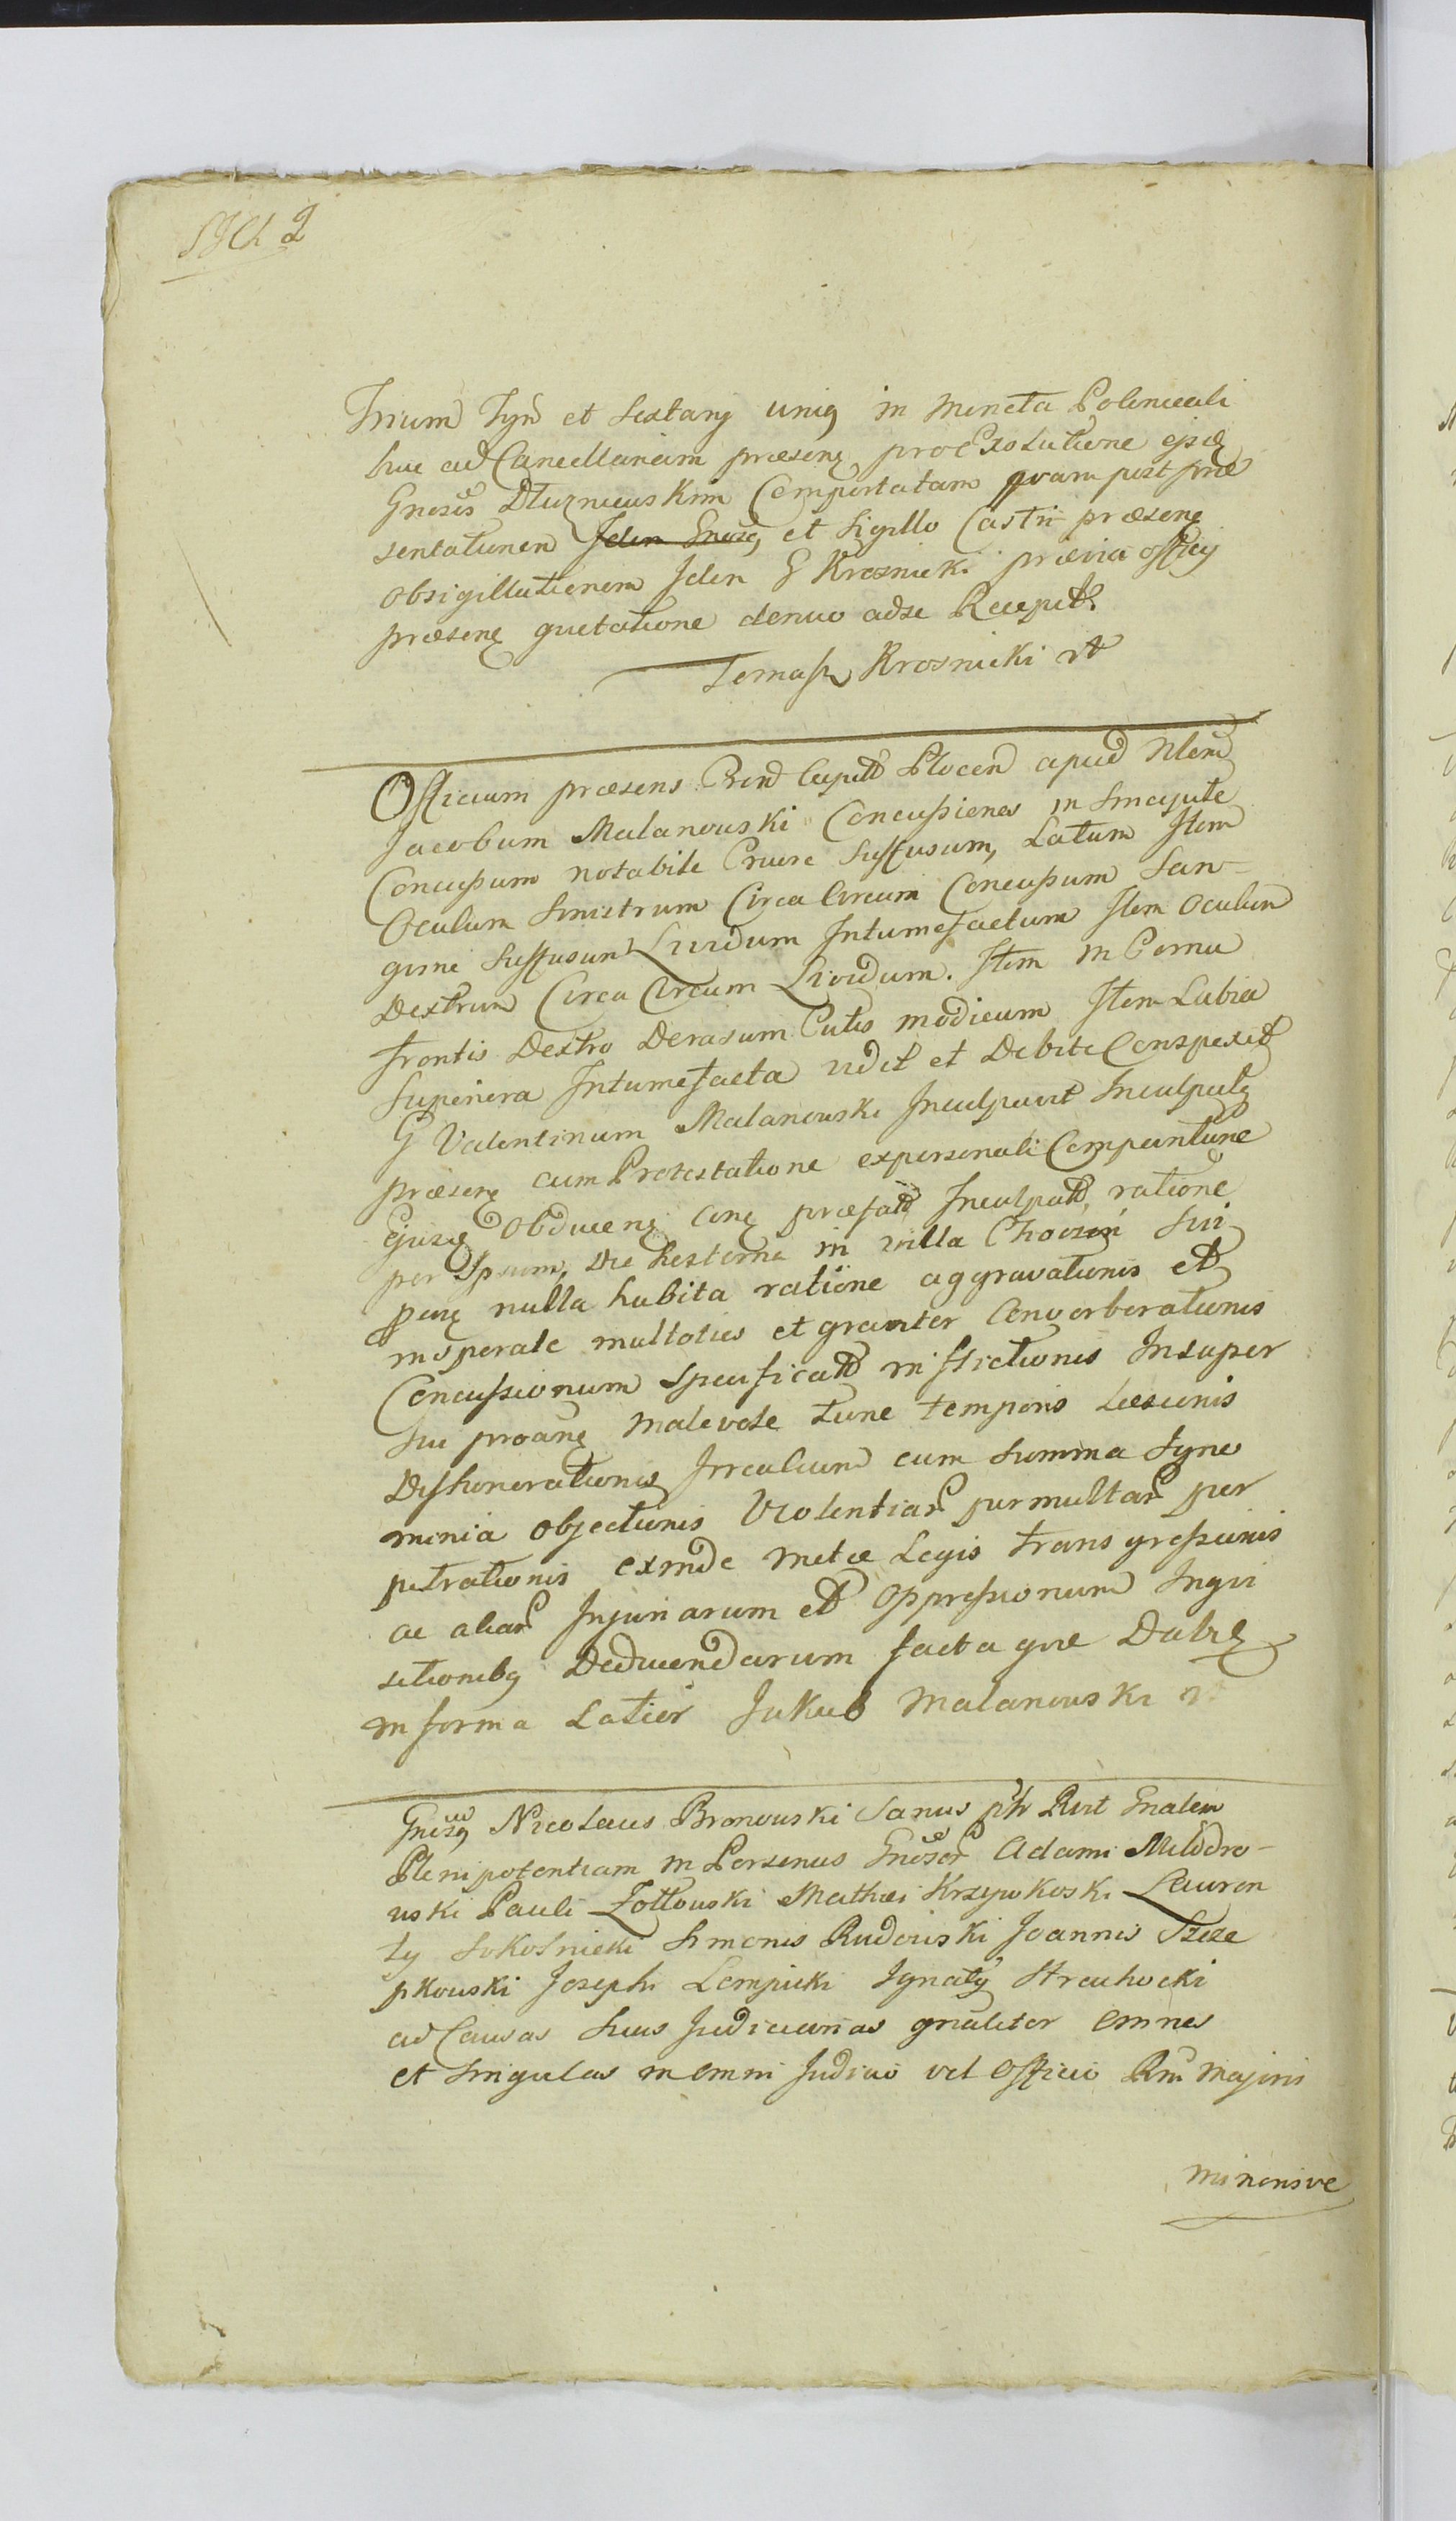 Trium Tyn et sextany uniq in Moneta Polonicali
huc ad Cancellariam præsenę pro exolutione
Gnosis Dłuzniewskim Comportatam quam post præ
sentationem Iden Gnosq et Sigillo Castri præsenę
obsigillationem Iden G Krosnicki prævia officij
præsenę quetatione denuo ad se Recepit
Tomasz Krosnicki

Officium præsens Capit Plocen apud Nlem
Jacobum Malanowski Concussiones in sincipite
Concussum notabile Cruore suffusum, Latum Item
Oculum sinistrum Circa Circum Concussum San-
guine suffusum Lividum Intumefactum Item Oculum
Dextrum Circa Circum Lividum. Item in Cornu
frontis Dextro Derasum Cutis modicum Item Labia
Superiora Intumefacta vidit et Debite Conspexit
G Valentinum Malanowski Inculpavit Inculpatq
præsenę cum Protestatione ex personali Comparitione
Ejusq Obducenę conę præfatt Inculpatt ratione
per Ipsum, Die hesterna in villa Choczeń sui
penę nulla habita ratione aggravationis et
insperate multoties et graviter Converberationis
Concussionum specificatt inflictionis Insuper
sui proanę malevole tunc temporis Læsionis
Dishonorationis cum summa Igno
minia objectionis Violentiar permultar per
petrationis exinde metæ Legis transgressionis
ac aliar Injuriarum et oppressionum Inqvi
sitionibq Deducendarum facta qvæ Dabię
in forma Latior Jakub Malanowski

Gnosq Nicolaus Bromowski Sanus Rvit Gnalem
Plenipotentiam in Personas Gnosor Adami Milodro-
wski Pauli Zołtowski Mathæi Krzywkoski Lauren
ty Sokolnicki Simonis Rudowski Joannis Szcze
pkowski Joseph Lempicki Ignaty Strachocki
ad Causas suas Judiciarias gnaliter omnes
et singulas in omni Judicio vel officio Rni Majoris
minorisve